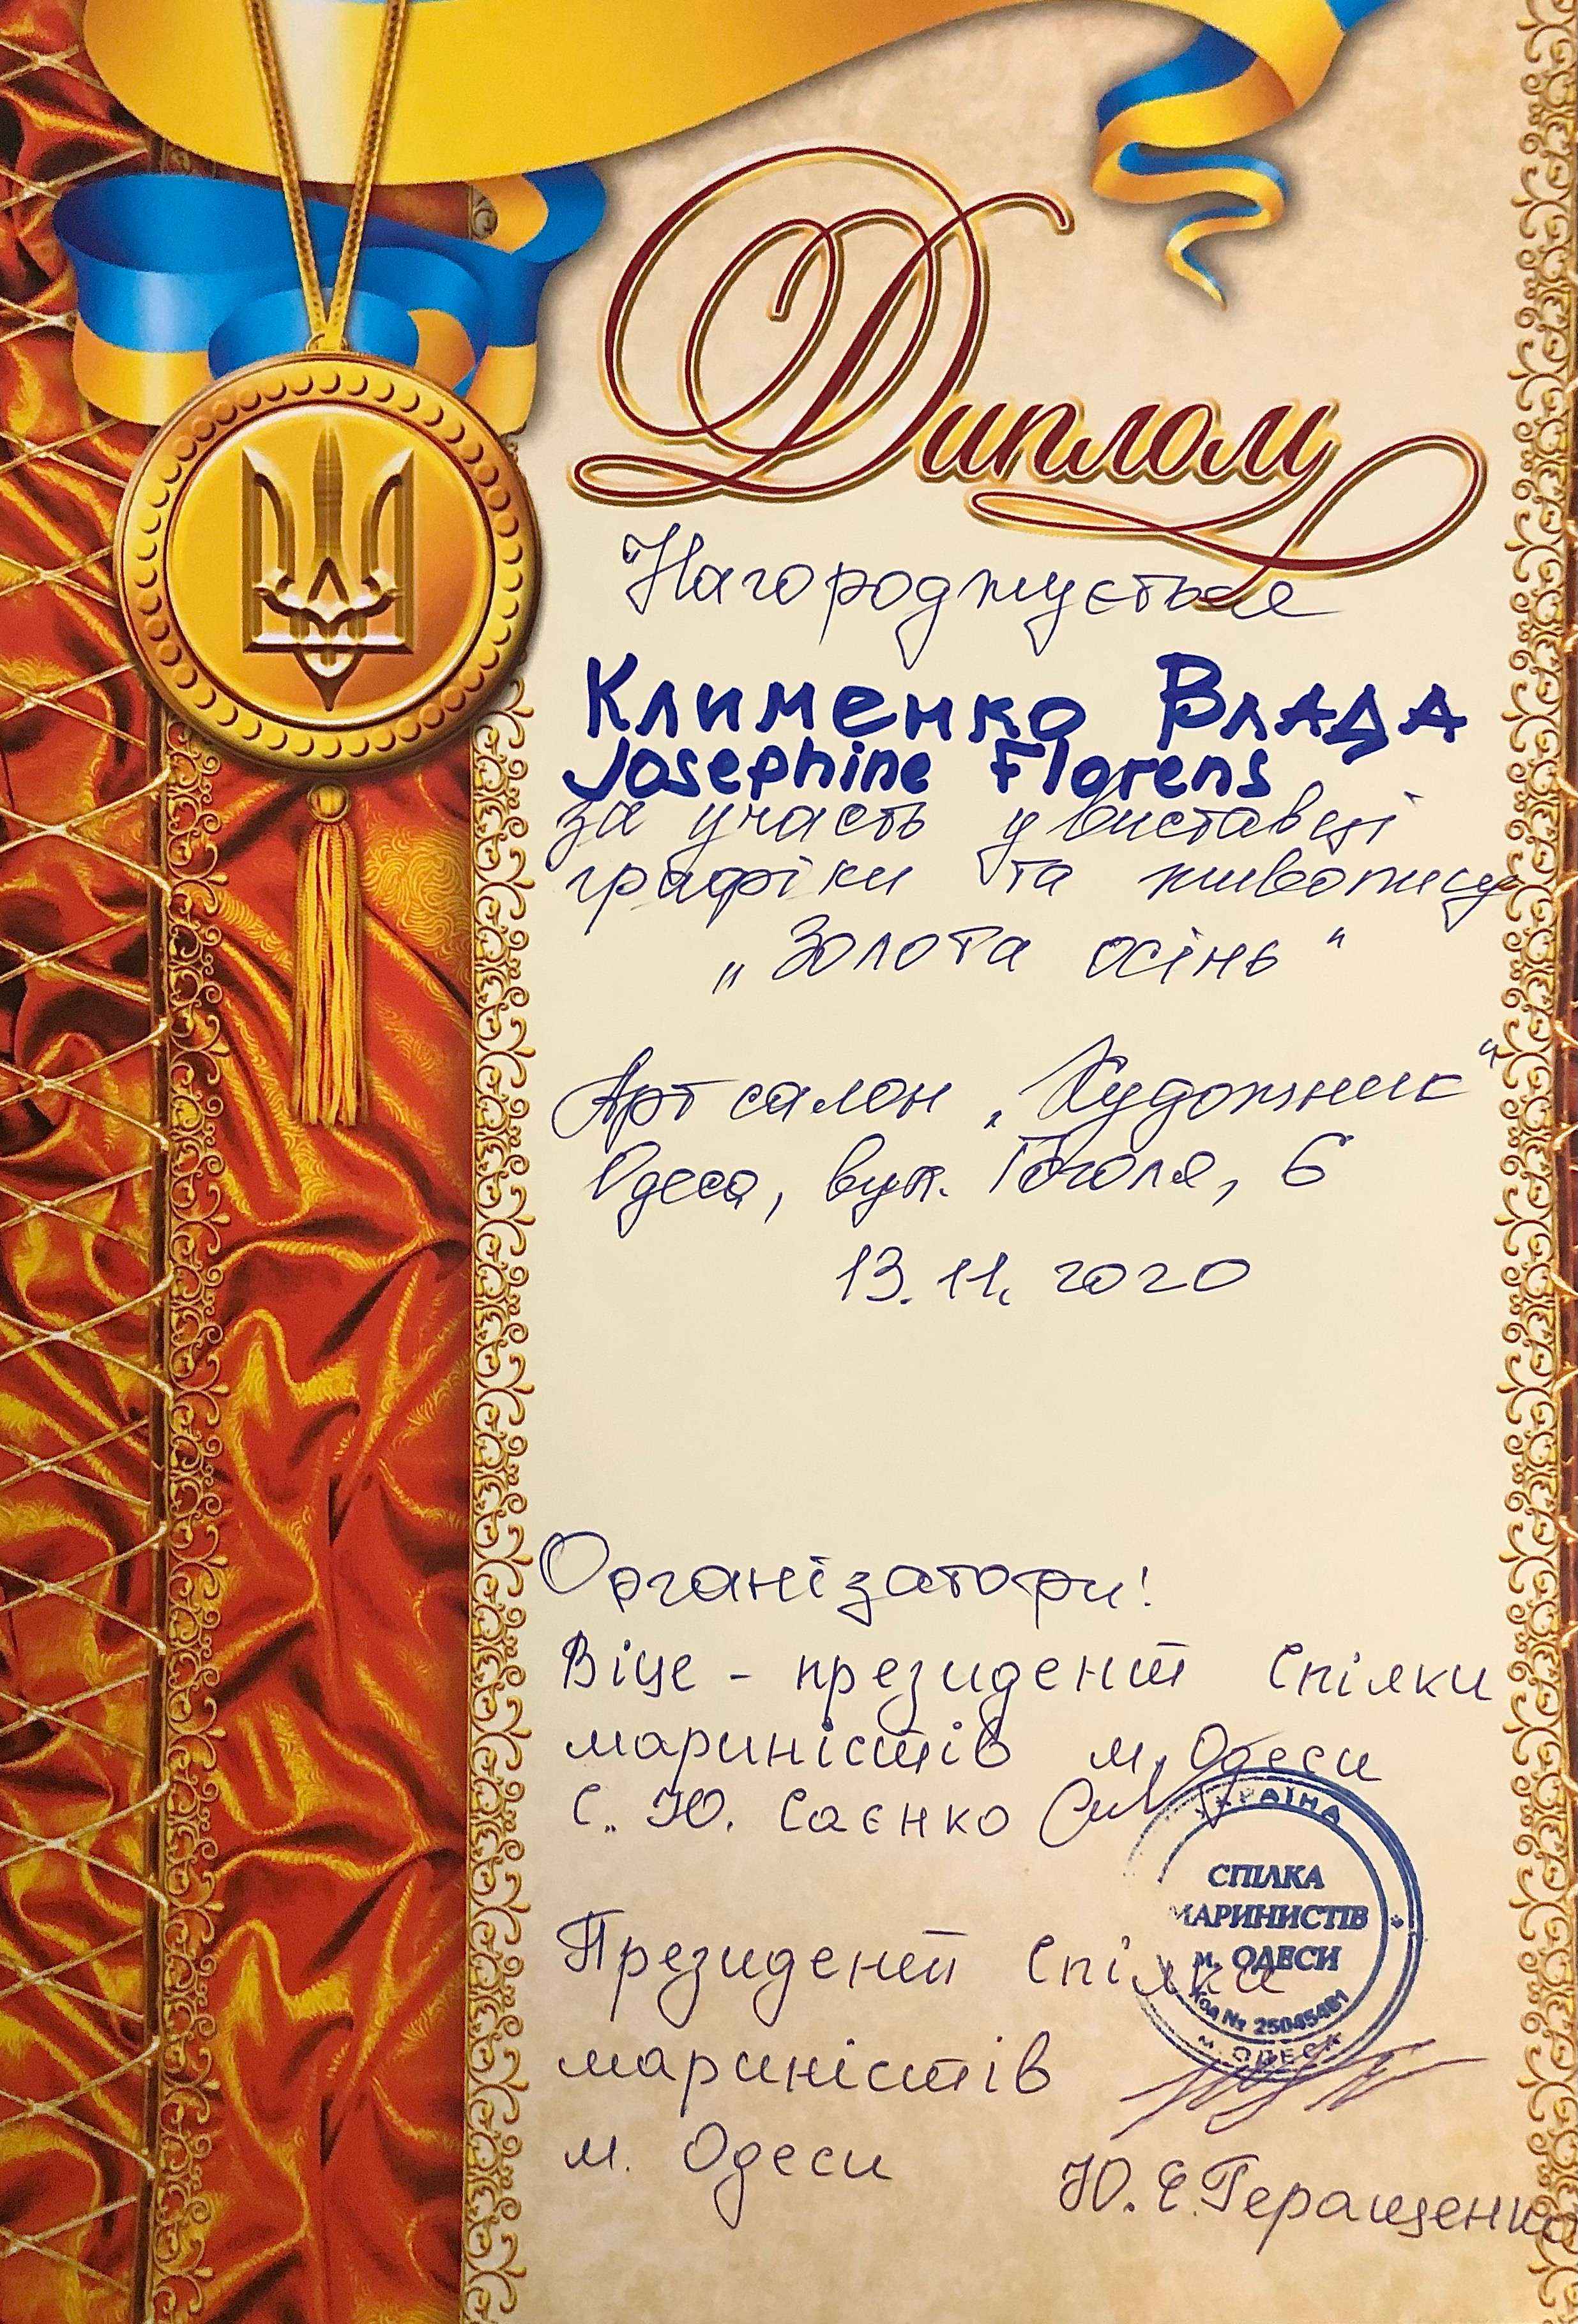 Диплом
Нагороджується
Клименко Влада
Josephine Florens
за участь у виставці
графіки та живопису
„Золота осінь"
Арт салон „Художник"
Одеса, вул. Гоголя, 6
13.11.2020
Організатори:
Віце-президент Спілки
мариністів м. Одеси
С. Ю. Саєнко
УКРАЇНА
СПІЛКА
МАРИНИСТІВ
м. ОДЕСИ
Код № 25045481
м. ОДЕСА
Президент Спілки
мариністів
м. Одеси
Ю. Є. Геращенко